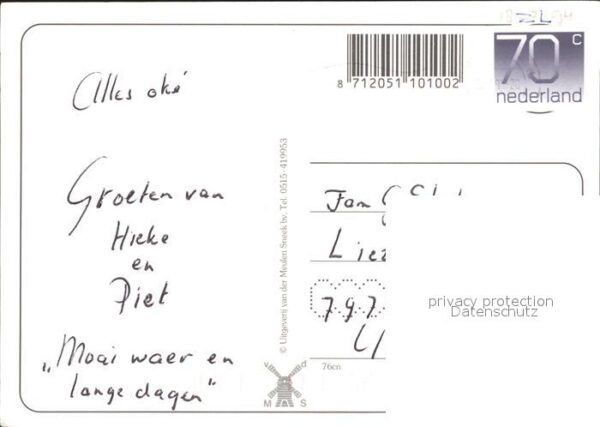 Alles oké
Groeten van
Hieke
en
Piet
„Mooi waer en
lange dagen"
8 712051 101002
70 c
nederland
© Uitgeverij van der Meulen Sneek bv. Tel. 0515-419953
Fam
797
v d
M S
76cn
privacy protection
Datenschutz